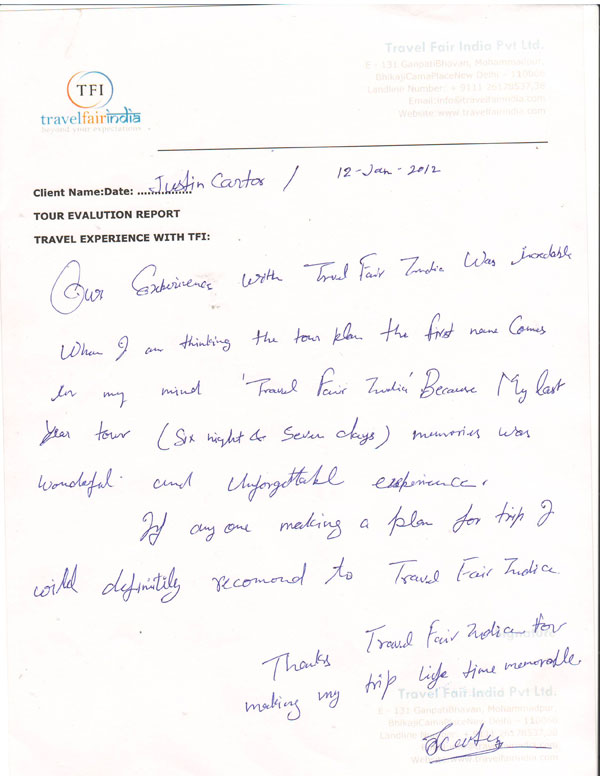 Travel Fair India Pvt Ltd.
E - 131 GanpatiBhavan, Mohammadpur,
BhikajiCamaPlaceNew Delhi - 110066
Landline Number: + 9111 26178537,38
Email:info@travelfairindia.com
Website:www.travelfairindia.com
TFI
travelfairindia
beyond your expectations
Client Name:Date: ................ Justin Carter / 12-Jan-2012
TOUR EVALUTION REPORT
TRAVEL EXPERIENCE WITH TFI:
Our Experinence with Travel Fair India Was
When I am thinking the tour plan the first name Comes
in my mind 'Travel Fair India' Because My last
year tour (Six night & Seven days) memories was
wondeful and Unforgottable experience.
If any one making a plan for trip I
will definitily recomond to Travel Fair India
Thanks Travel Fair India for
making my trip life time memorable.
Travel Fair India Pvt Ltd.
E - 131 GanpatiBhavan, Mohammadpur,
BhikajiCamaPlaceNew Delhi - 110066
Landline 26178537,38
JCarter
www.travelfairindia.com